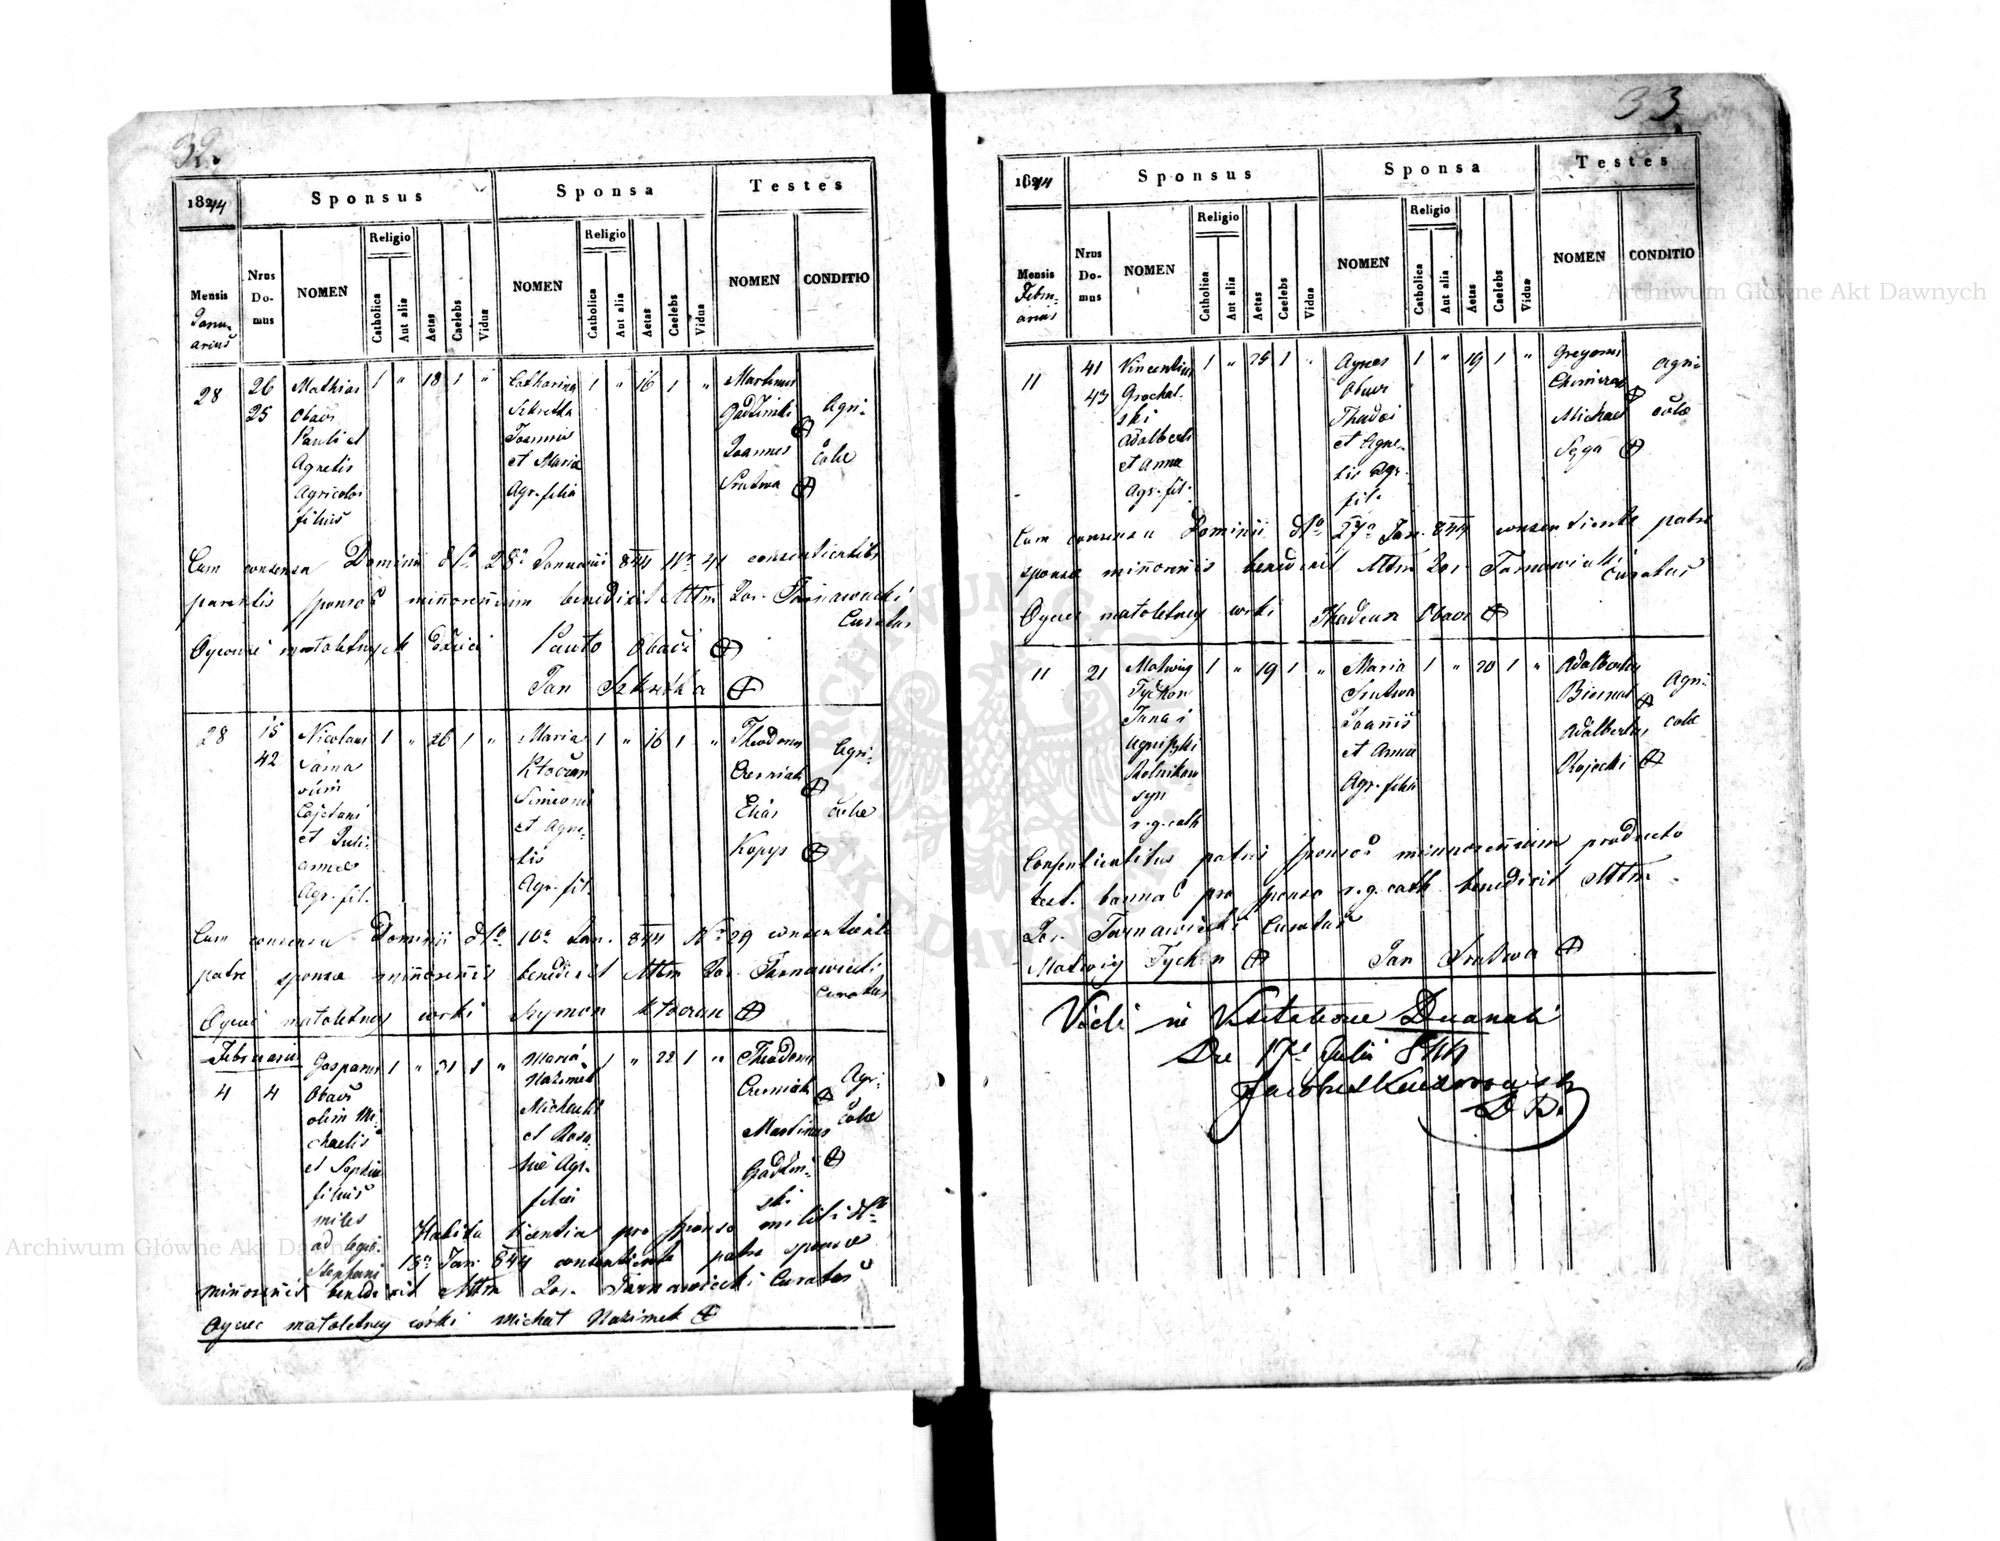 32.
1844
Sponsus
Sponsa
Testes
Mensis
Janu-
arius
Nrus
Do-
mus
NOMEN
Religio
Catholica
Aut alia
Aetas
Caelebs
Vidua
NOMEN
Religio
Catholica
Aut alia
Aetas
Caelebs
Vidua
NOMEN
CONDITIO
28
26
25
Mathias
Obacz
Pauli et
Agnetis
Agricolar
filius
1 " 18 1 "
Catharina
Szkretka
Joannis
et Maria
Agr. filia
1 " 16 1 "
Martinus
Gadzinski
Joannes
Srutwa
Agri-
colae
Cum consensu Dominii dto 28a Januarii 844 No 41 consentientibs
parentis sponsor minorenium benedixit Mtm Jos. Tarnawiecki
Curatus
Oycowie małoletnych dzieci Pauto Obacz
Jan Szkretka
28
15
42
Nicolaus
Cajetani
et Juli-
annae
Agr. fil.
1 " 26 1 "
Maria
Kłoczan
Simeonis
et Agne-
tis
Agr. fil.
1 " 16 1 "
Theodorus
Czerniak
Elias
Kopys
Agri-
colae
Cum consensu Dominii dto 10a Jan. 844 No 29 consentiente
patre sponsae minorennis benedixit Mtm Jos. Tarnawiecki
Curatus
Oyciec małoletney corki Szymon Kłoczan
Februarius
4
4
Gasparus
Obacz
olim Mi-
chaelis
et Sophiae
filius
miles
ad legio.
Stephani
1 " 31 1 "
Maria
Nazimek
Michaelis
et Rosa-
liae Agr.
filia
1 " 22 1 "
Theodorus
Czerniak
Martinus
Gadzin-
ski
Agri-
colae
Habita licentia pro sponso militi dto
13a Jan. 844 consentiente patre sponsae
minorennis benedixit Mtm Jos. Tarnawiecki Curatus
Oyciec małoletney córki Michał Nazimek
33
1844
Sponsus
Sponsa
Testes
Mensis
Febru-
arius
Nrus
Do-
mus
NOMEN
Religio
Catholica
Aut alia
Aetas
Caelebs
Vidua
NOMEN
Religio
Catholica
Aut alia
Aetas
Caelebs
Vidua
NOMEN
CONDITIO
11
41
43
Vincentius
Grochal-
ski
Adalberti
et Anna
Agr. fil.
1 " 25 1 "
Agnes
Obacz
Thadei
et Agne-
tis Agr.
fil.
1 " 19 1 "
Gregorius
Michael
Syga
Agri-
colae
Cum consensu Dominii dto 27a Jan. 844 consentiente patre
sponsae minorennis benedixit Mtm Jos. Tarnawiecki
Curatus
Oyciec małoletney corki Thadeusz Obacz
11
21
Matwiy
Tyczkon
Jana i
Agniszki
Rolnikow
syn
r. g. cath
1 " 19 1 "
Maria
Srutwa
Joannis
et Anna
Agr. filia
1 " 20 1 "
Adalbertus
Biernat
Adalbertus
Rojecki
Agri-
colae
Consentientibus patris sponsor minnorennium producto
test. bannor pro sponso r. g. cath benedixit Mtm
Jos. Tarnawiecki Curatus
Matwiy Tyczkon Jan Srutwa
Vidi in Visitatione Decanali
Die 17a Julii 844
Jacobus
Archiwum Główne Akt Dawnych
Archiwum Główne Akt Dawnych
ARCHIWUM GŁÓWNE AKT DAWNYCH